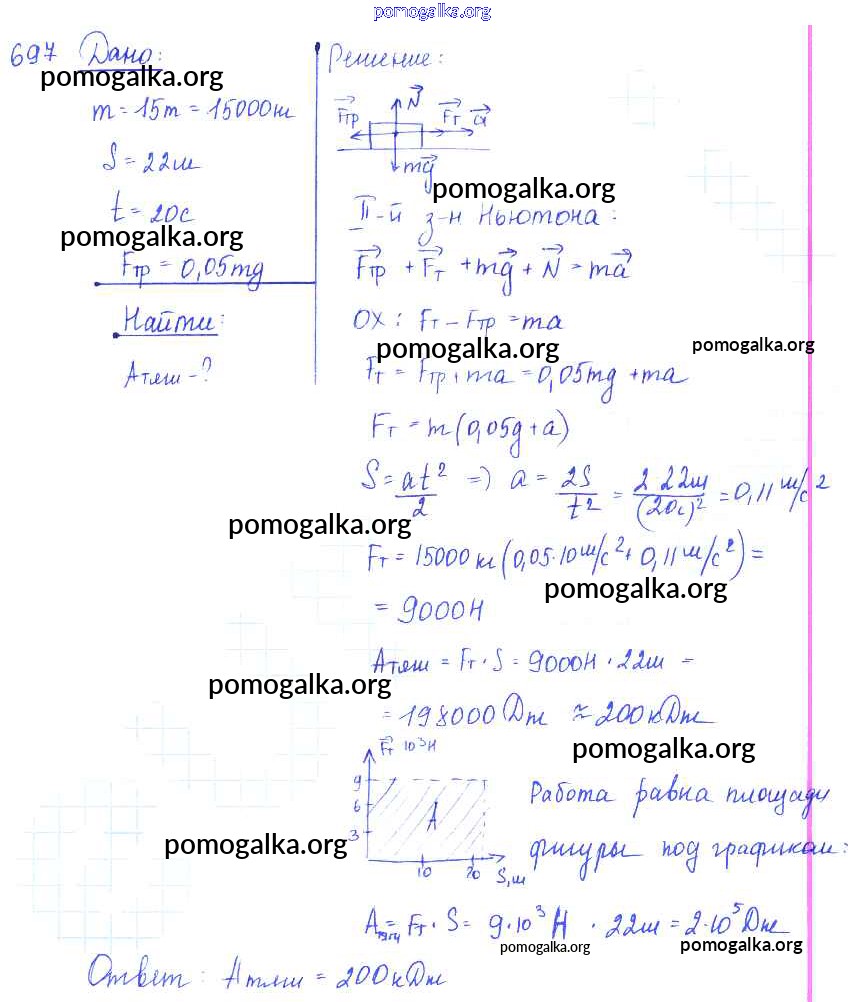 pomogalka.org
697 Дано:
pomogalka.org
m = 15т = 15000кг
S = 22м
t = 20с
pomogalka.org
Fтр = 0,05mg
Найти:
Aтяги - ?
Решение:
N
Fтр Fт a
mg
pomogalka.org
II-й з-н Ньютона:
Fтр + Fт + mg + N = ma
OX: Fт - Fтр = ma
pomogalka.org pomogalka.org
Fт = Fтр + ma = 0,05mg + ma
Fт = m(0,05g + a)
S = at²/2 => a = 2S/t² = 2 22м/(20с)² = 0,11 м/с²
pomogalka.org
Fт = 15000 кг (0,05·10 м/с² + 0,11 м/с²) =
pomogalka.org
= 9000Н
Aтяги = Fт · S = 9000Н · 22м =
pomogalka.org
= 198000 Дж ≈ 200 кДж
Fт 10³Н
pomogalka.org
9
6 A
3
10 20 S, м
Работа равна площади
фигуры под графиком:
pomogalka.org
Aтяги = Fт · S = 9·10³ Н · 22м = 2·10⁵ Дж
pomogalka.org pomogalka.org
Ответ: Aтяги = 200 кДж